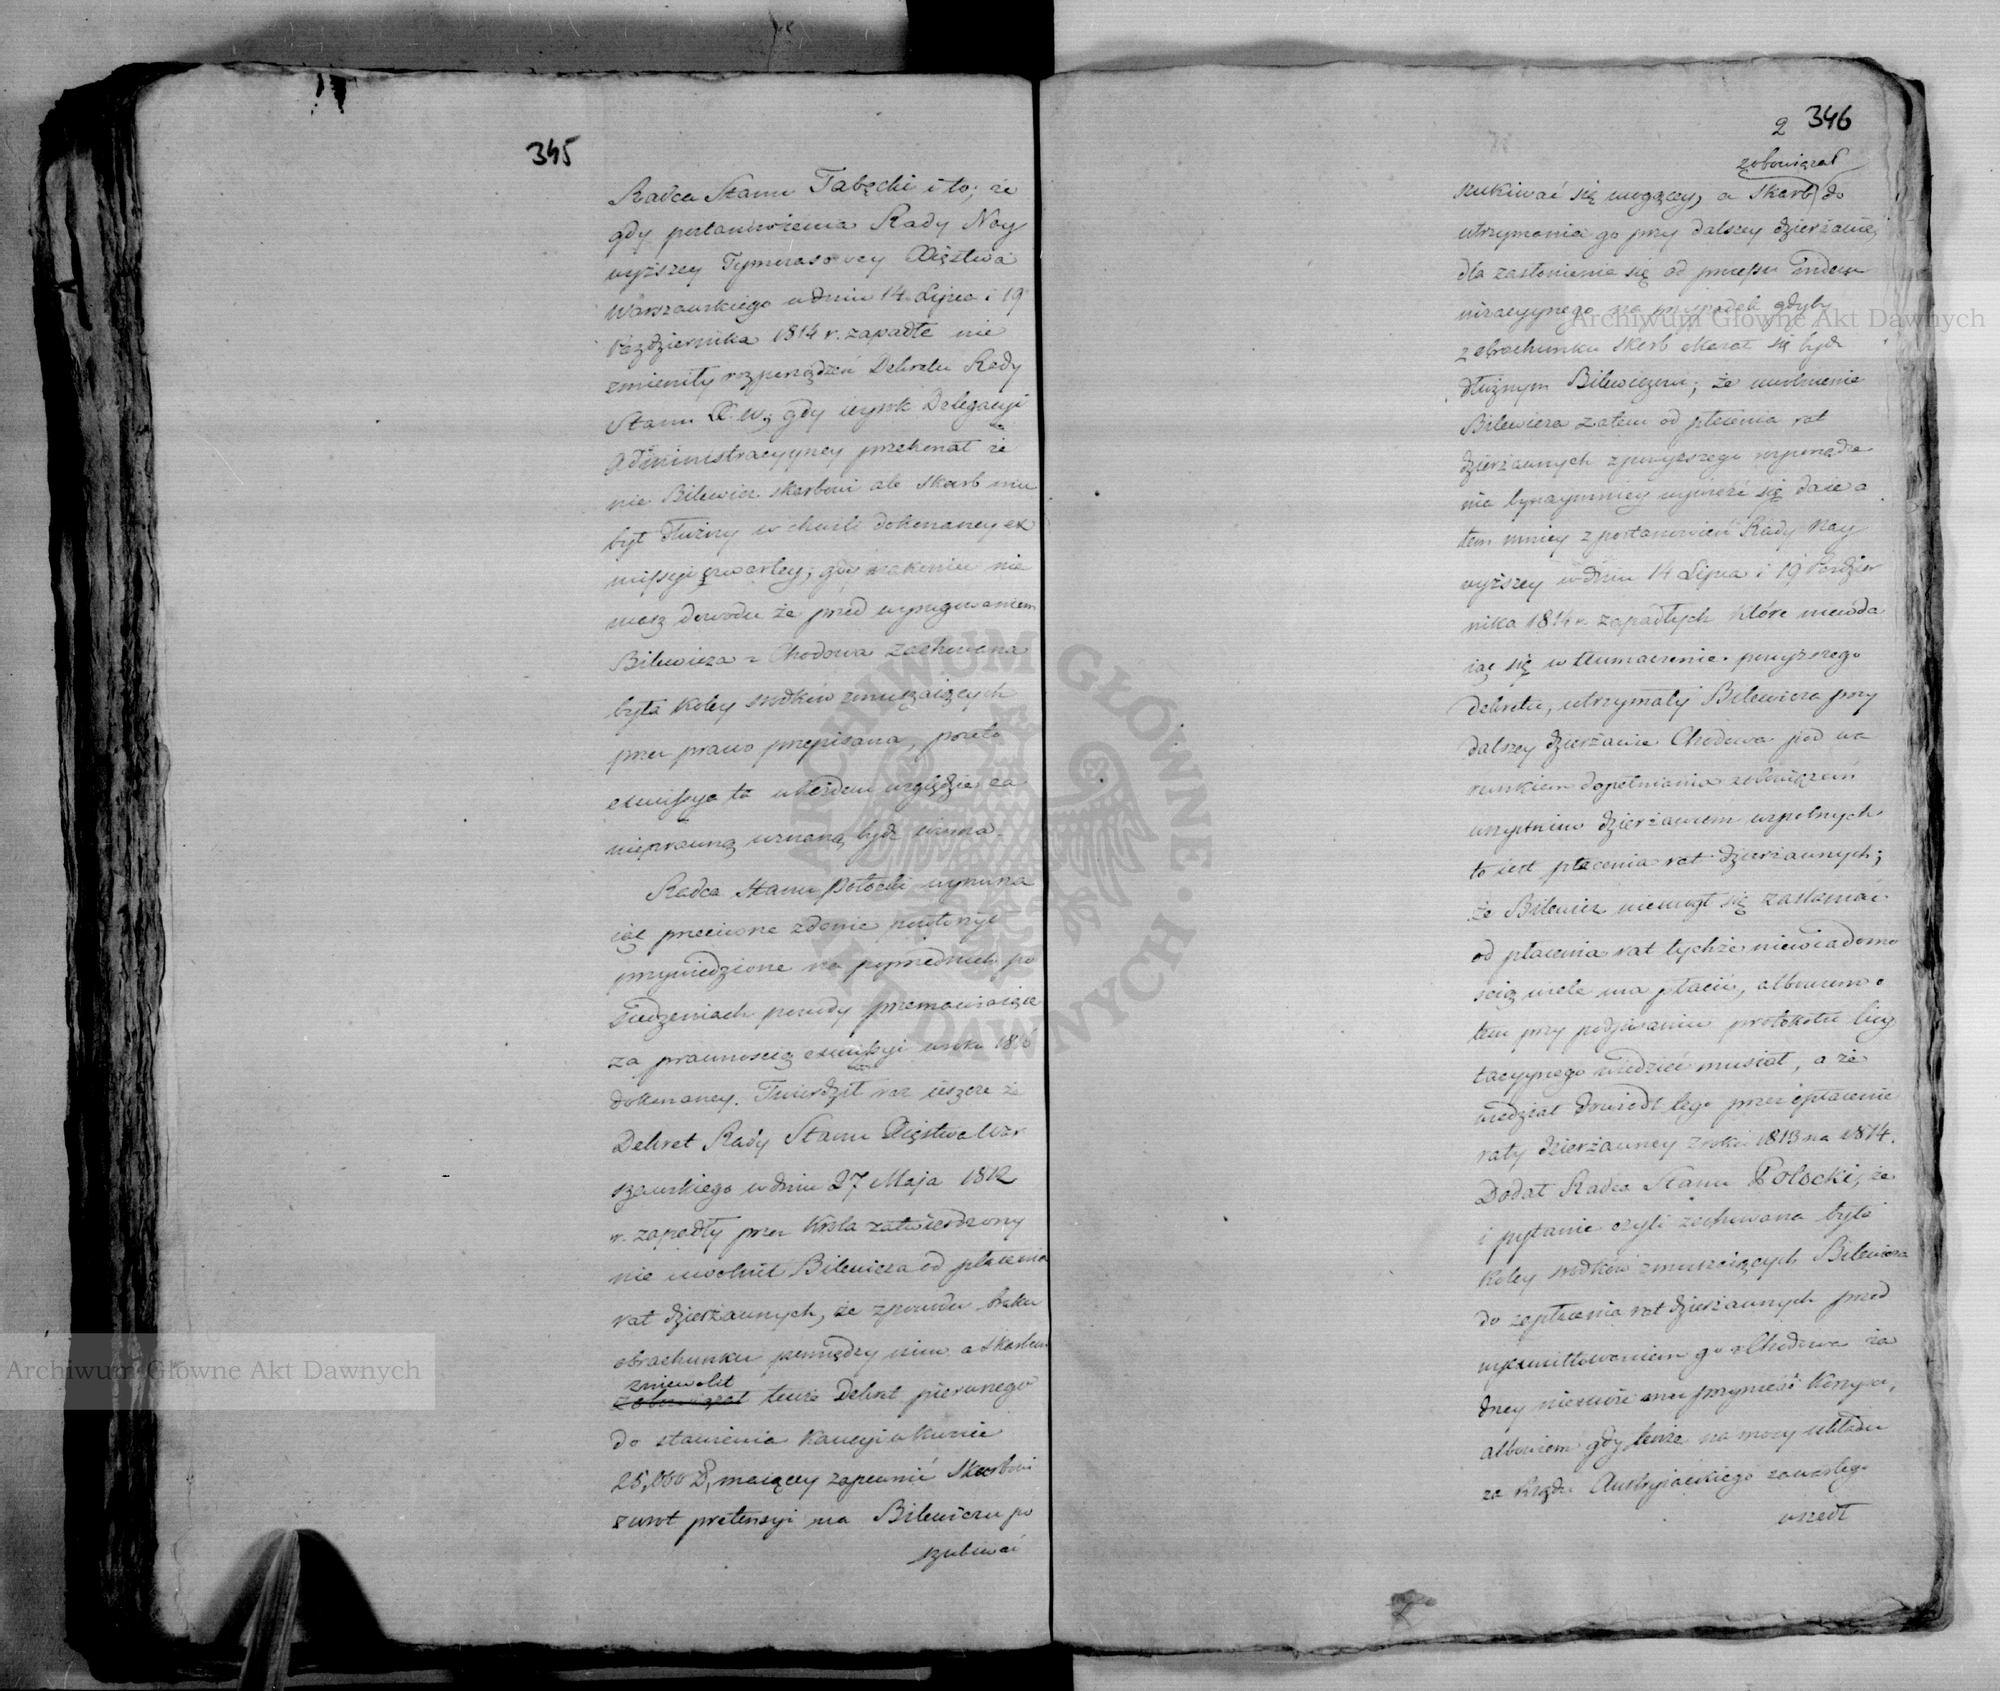 345
Radca Stanu Tabęcki i to; że
gdy postanowienia Rady Nay
wyższey Tymczasowey Xięstwa
Warszawskiego w dniu 14 Lipca i 19
Października 1814 r. zapadłe nie
zmieniły rozporządzeń Dekretu Rady
Stanu X. W; gdy wyrok Delegacyi
Administracyyney przekonał że
nie Bilewicz skarbowi ale Skarb mu
był dłużny w chwili dokonaney ex
missyi czwartey; gdy nakoniec nie
masz dowodu że przed wyrugowaniem
Bilewicza z Chodowa zachowana
była koley srodków zmuszaiących
przez prawo przepisana, przeto
exmissya ta w każdem względzie za
nieprawną uznaną bydź winna.
Radca Stanu Potocki wynurza
iąc przeciwne zdanie powtórzył
przywiedzione na poprzednich po
siedzeniach powody przemawiaiące
za prawnością exmissyi w roku 1816
dokonaney. Twierdził raz ieszcze że
Dekret Rady Stanu Xięstwa War
szawskiego w dniu 27 Maja 1812
r. zapadły przez Króla zatwierdzony
nie uwolnił Bilewicza od płacenia
rat dzierżawnych, że z powodu braku
obrachunku pomiędzy nim a Skarbem
zniewolił
zobowiązał tenże Dekret pierwszego
do stawienia kaucyi w kwocie
25,000 Zł, maiącey zapewnić Skarbowi
zwrot pretensyi na Bilewiczu po
szukiwać
2 346
zobowiązał
szukiwać się mogącey, a Skarb do
utrzymania go przy dalszey dzierżawie,
dla zasłonienia się od procesu indem
nizacyynego na przypadek gdyby
z obrachunku Skarb okazał się bydź
dłużnym Bilewiczowi; że uwolnienie
Bilewicza zatem od płacenia rat
dzierżawnych z powyższego rozporządze
nia bynaymniey wywieść się daie a
tem mniey z postanowień Rady Nay
wyższey w dniu 14 Lipca i 19 Paździer
nika 1814 r. zapadłych które niewda
iąc się w tłumaczenie powyższego
Dekretu, utrzymały Bilewicza przy
dalszey dzierżawie Chodowa pod wa
runkiem dopełniania zobowiązań
wszystkim dzierżawcom wspólnych
to iest płacenia rat dzierżawnych;
że Bilewicz niemógł się zasłaniać
od płacenia rat tychże niewiadomo
ścią wiele ma płacić, albowiem o
tem przy podpisaniu protokołu licy
tacyynego wiedzieć musiał, a że
wiedział dowiódł tego przez opłacenie
raty dzierżawney z roku 1813 na 1814.
Dodał Radca Stanu Potocki, że
i pytanie czyli zachowana była
koley srodków zmuszaiących Bilewicza
do zapłacenia rat dzierżawnych przed
wyexmittowaniem go z Chodowa ża
dney niemoże mu przynieść korzyści,
albowiem gdy tenże na mocy układu
za Rządu Austryiackiego zawartego
wszedł
Archiwum Główne Akt Dawnych
Archiwum Główne Akt Dawnych
ARCHIWUM GŁÓWNE AKT DAWNYCH